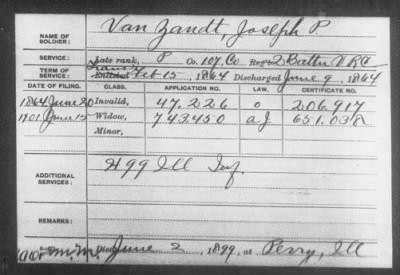 NAME OF SOLDIER: Van Zandt, Joseph P.
SERVICE: Late rank, P Co. 107, Co Reg't 2 Battn V R C
TERM OF SERVICE: Enlisted Feb 15, 1864 Discharged June 9, 1864
DATE OF FILING. CLASS. APPLICATION NO. LAW. CERTIFICATE NO.
1864 June 20 Invalid, 47.226 o 206.917
1901 June 15 Widow, 743450 a.J 651.038
Minor,
ADDITIONAL SERVICES: H 99 Ill Inf.
REMARKS:
Died June 2, 1899, at Perry, Ill